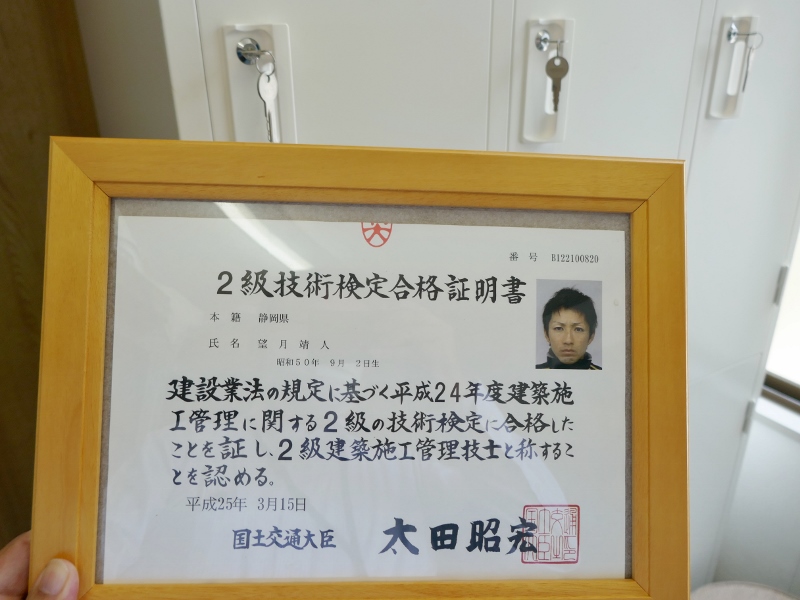 番 号 B122100820
２級技術検定合格証明書
本 籍 静岡県
氏 名 望 月 靖 人
昭和５０年 ９月 ２日生
建設業法の規定に基づく平成24年度建築施
工管理に関する２級の技術検定に合格した
ことを証し、２級建築施工管理技士と称するこ
とを認める。
平成25年 3月15日
国土交通大臣 太田昭宏